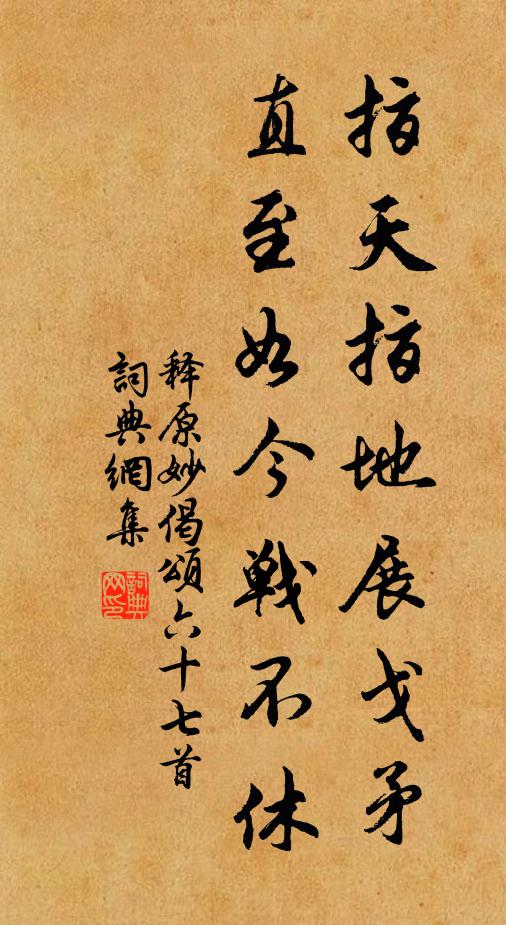 指天指地展戈矛
直至如今戰不休
释原妙偈頌六十七首
詞典網集
詞典网印